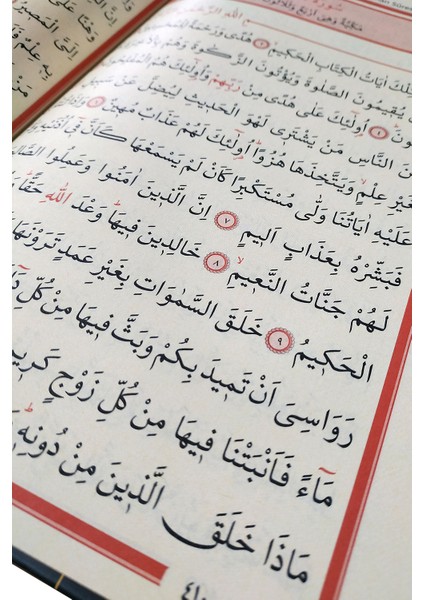 سُورَةُ
مَكِّيَّةٌ وَهِيَ اَرْبَعٌ وَثَلَاثُونَ
اللّٰهِ
اٰيَاتُ الْكِتَابِ الْحَكِيمِ هُدًى وَرَحْمَةً
يُقِيمُونَ الصَّلٰوةَ وَيُؤْتُونَ الزَّكٰوةَ وَهُمْ
اُولٰٓئِكَ عَلٰى هُدًى مِنْ رَبِّهِمْ وَاُولٰٓئِكَ هُمُ
النَّاسِ مَنْ يَشْتَرِي لَهْوَ الْحَدِيثِ لِيُضِلَّ عَنْ
عِلْمٍ وَيَتَّخِذَهَا هُزُوًا اُولٰٓئِكَ لَهُمْ عَذَابٌ مُهِينٌ ٦ وَاِذَا
عَلَيْهِ اٰيَاتُنَا وَلّٰى مُسْتَكْبِرًا كَاَنْ لَمْ يَسْمَعْهَا كَاَنَّ فِي
فَبَشِّرْهُ بِعَذَابٍ اَلِيمٍ ٧ اِنَّ الَّذِينَ اٰمَنُوا وَعَمِلُوا
لَهُمْ جَنَّاتُ النَّعِيمِ ٨ خَالِدِينَ فِيهَا وَعْدَ اللّٰهِ حَقًّا
الْحَكِيمُ ٩ خَلَقَ السَّمٰوَاتِ بِغَيْرِ عَمَدٍ تَرَوْنَهَا
رَوَاسِيَ اَنْ تَمِيدَ بِكُمْ وَبَثَّ فِيهَا مِنْ كُلِّ
مَاءً فَاَنْبَتْنَا فِيهَا مِنْ كُلِّ زَوْجٍ كَرِيمٍ
مَاذَا خَلَقَ الَّذِينَ مِنْ دُونِهِ